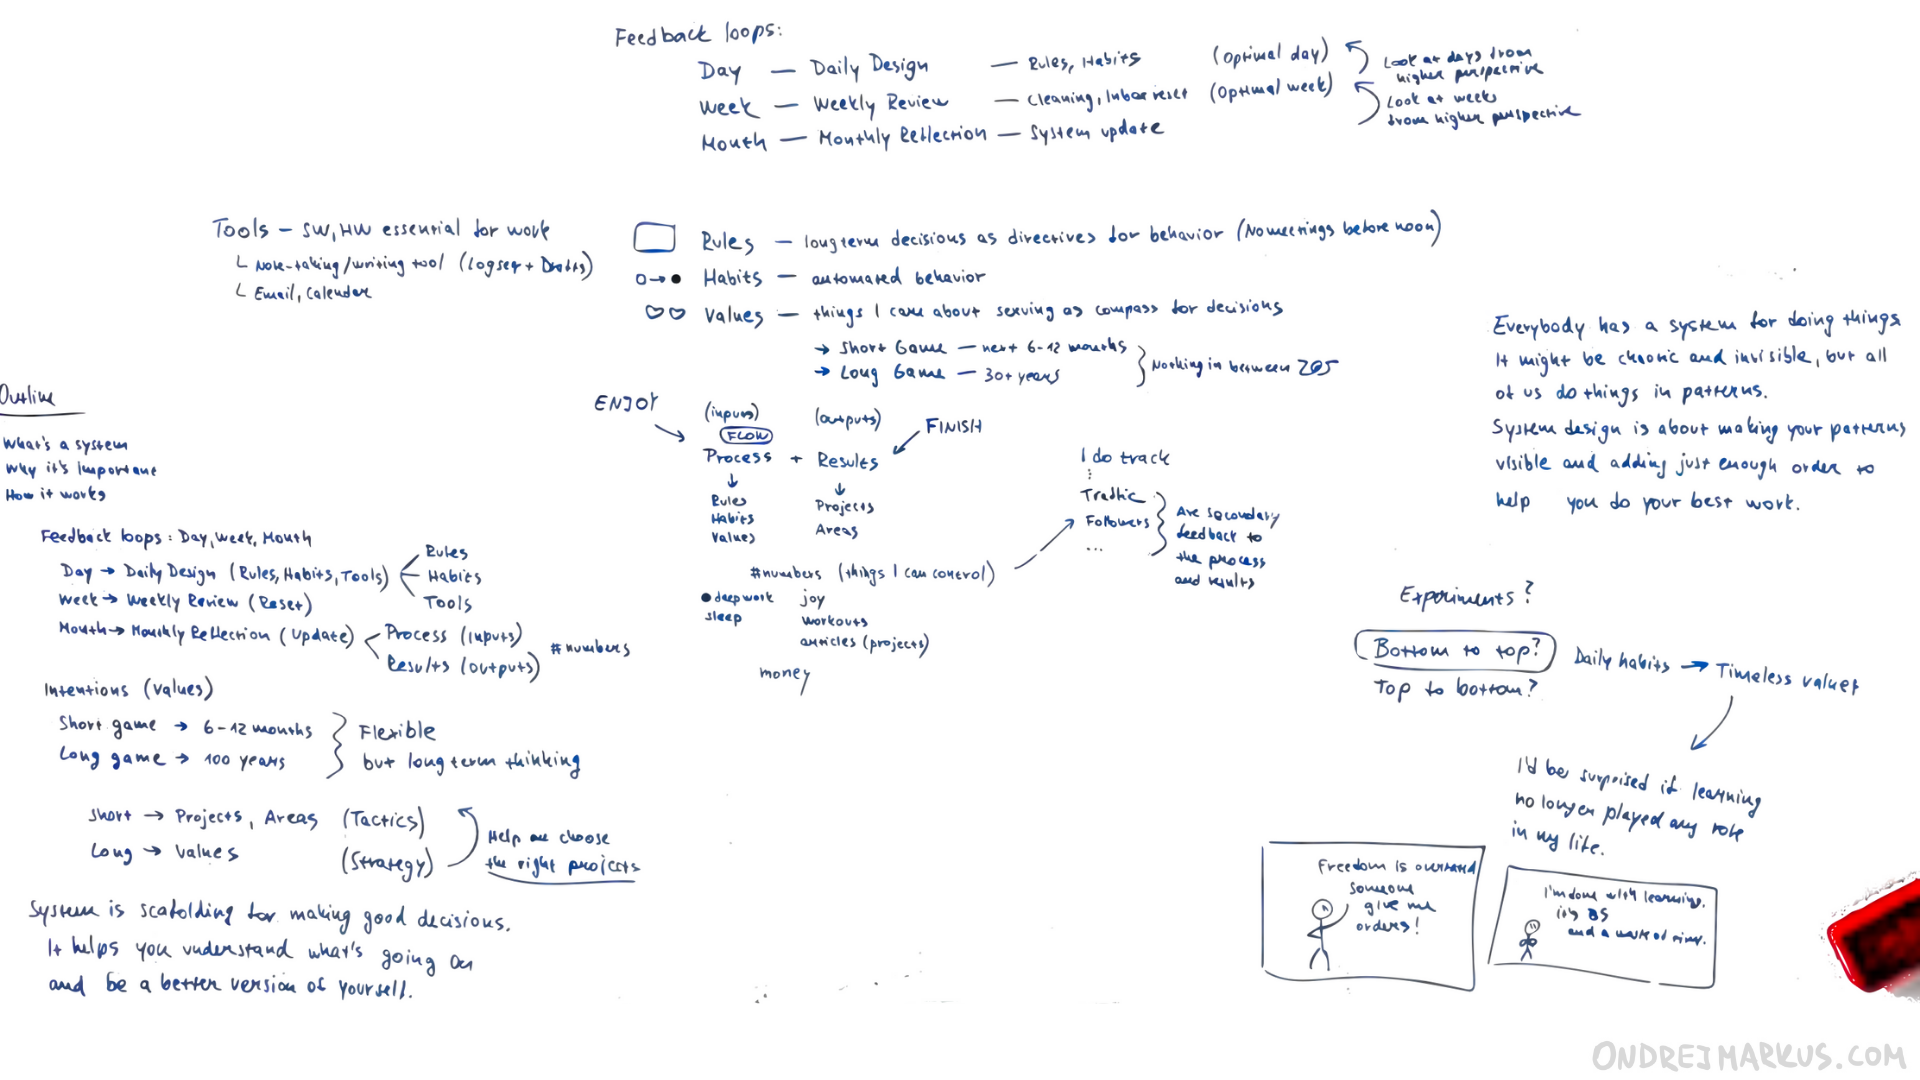 Feedback loops:
Day — Daily Design — Rules, Habits (Optimal day)
Week — Weekly Review — Cleaning, Inbox reset (Optimal week)
Month — Monthly Reflection — System update
Look at days from
higher perspective
Look at weeks
from higher perspective
Tools – SW, HW essential for work
└ Note-taking/writing tool (Logseq + Drafts)
└ Email, Calendar
Rules — long term decisions as directives for behavior (No meetings before noon)
Habits — automated behavior
Values — things I care about serving as compass for decisions
→ Short Game — next 6-12 months
→ Long Game — 30+ years
Nothing in between
ENJOY
(inputs) (outputs)
FLOW
FINISH
Process + Results
↓ ↓
Rules
Habits
Values
Projects
Areas
#numbers (things I can control)
deep work
sleep
joy
workouts
articles (projects)
money
I do track
Traffic
Followers
...
Are secondary
feedback to
the process
and results
Everybody has a system for doing things
It might be chaotic and invisible, but all
of us do things in patterns.
System design is about making your patterns
visible and adding just enough order to
help you do your best work.
Outline
What's a system
Why it's important
How it works
Feedback loops: Day, Week, Month
Day → Daily Design (Rules, Habits, Tools)
Rules
Habits
Tools
Week → Weekly Review (Reset)
Month → Monthly Reflection (Update)
Process (inputs)
Results (outputs)
#numbers
Intentions (values)
Short game → 6-12 months
Long game → 100 years
Flexible
but long term thinking
Short → Projects, Areas (Tactics)
Long → Values (Strategy)
Help me choose
the right projects
System is scafolding for making good decisions.
It helps you understand what's going on
and be a better version of yourself.
Experiments?
Bottom to top?
Top to bottom?
Daily habits → Timeless values
I'd be surprised if learning
no longer played any role
in my life.
Freedom is overrated
someone
give me
orders!
I'm done with learning.
it's BS
and a waste of time.
ONDREJMARKUS.COM